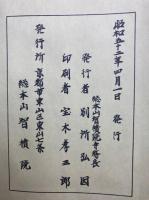 昭和五十二年四月一日　発行
総本山智積院寺務長
発行者　別所弘因
印刷者　宝木孝三郎
発行所　京都市東山区東山七条
総本山智積院